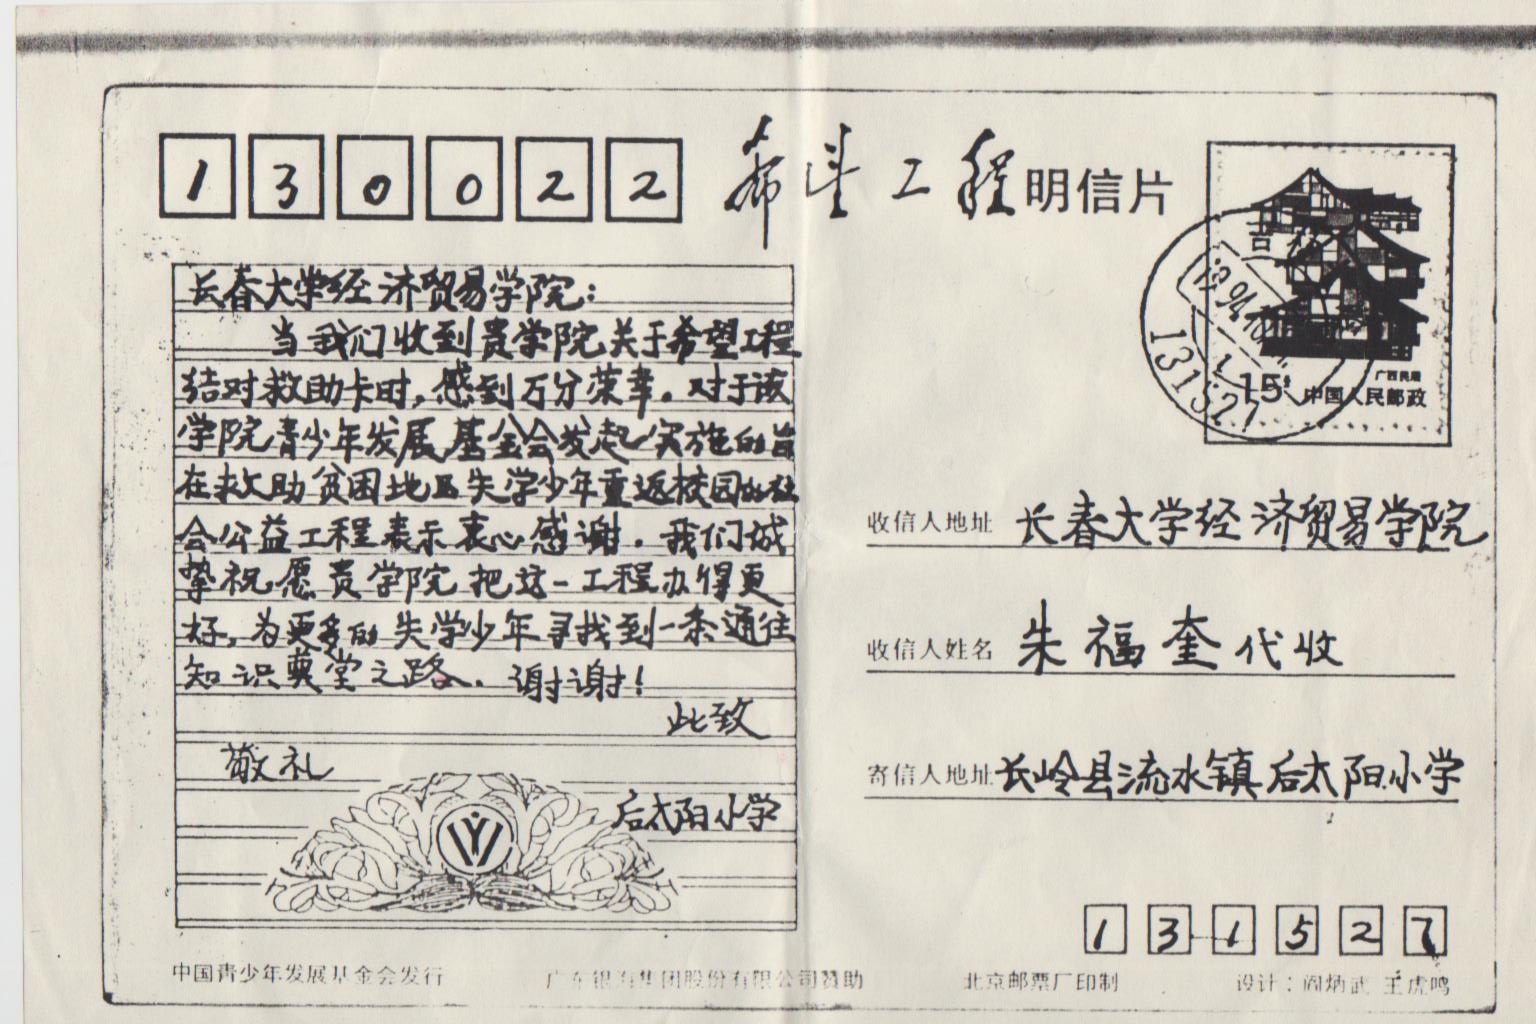 130022
希望工程明信片
长春大学经济贸易学院:
当我们收到贵学院关于希望工程
结对救助卡时,感到万分荣幸。对于该
学院青少年发展基金会发起实施的旨
在救助贫困地区失学少年重返校园的社
会公益工程表示衷心感谢。我们诚
挚祝愿贵学院把这一工程办得更
好,为更多的失学少年寻找到一条通往
知识奠堂之路。谢谢!
此致
敬礼
后太阳小学
吉林
131527
15
广西民居
中国人民邮政
收信人地址 长春大学经济贸易学院
收信人姓名 朱福奎代收
寄信人地址 长岭县流水镇后太阳小学
131527
中国青少年发展基金会发行
广东银海集团股份有限公司赞助
北京邮票厂印制
设计:阎炳武 王虎鸣